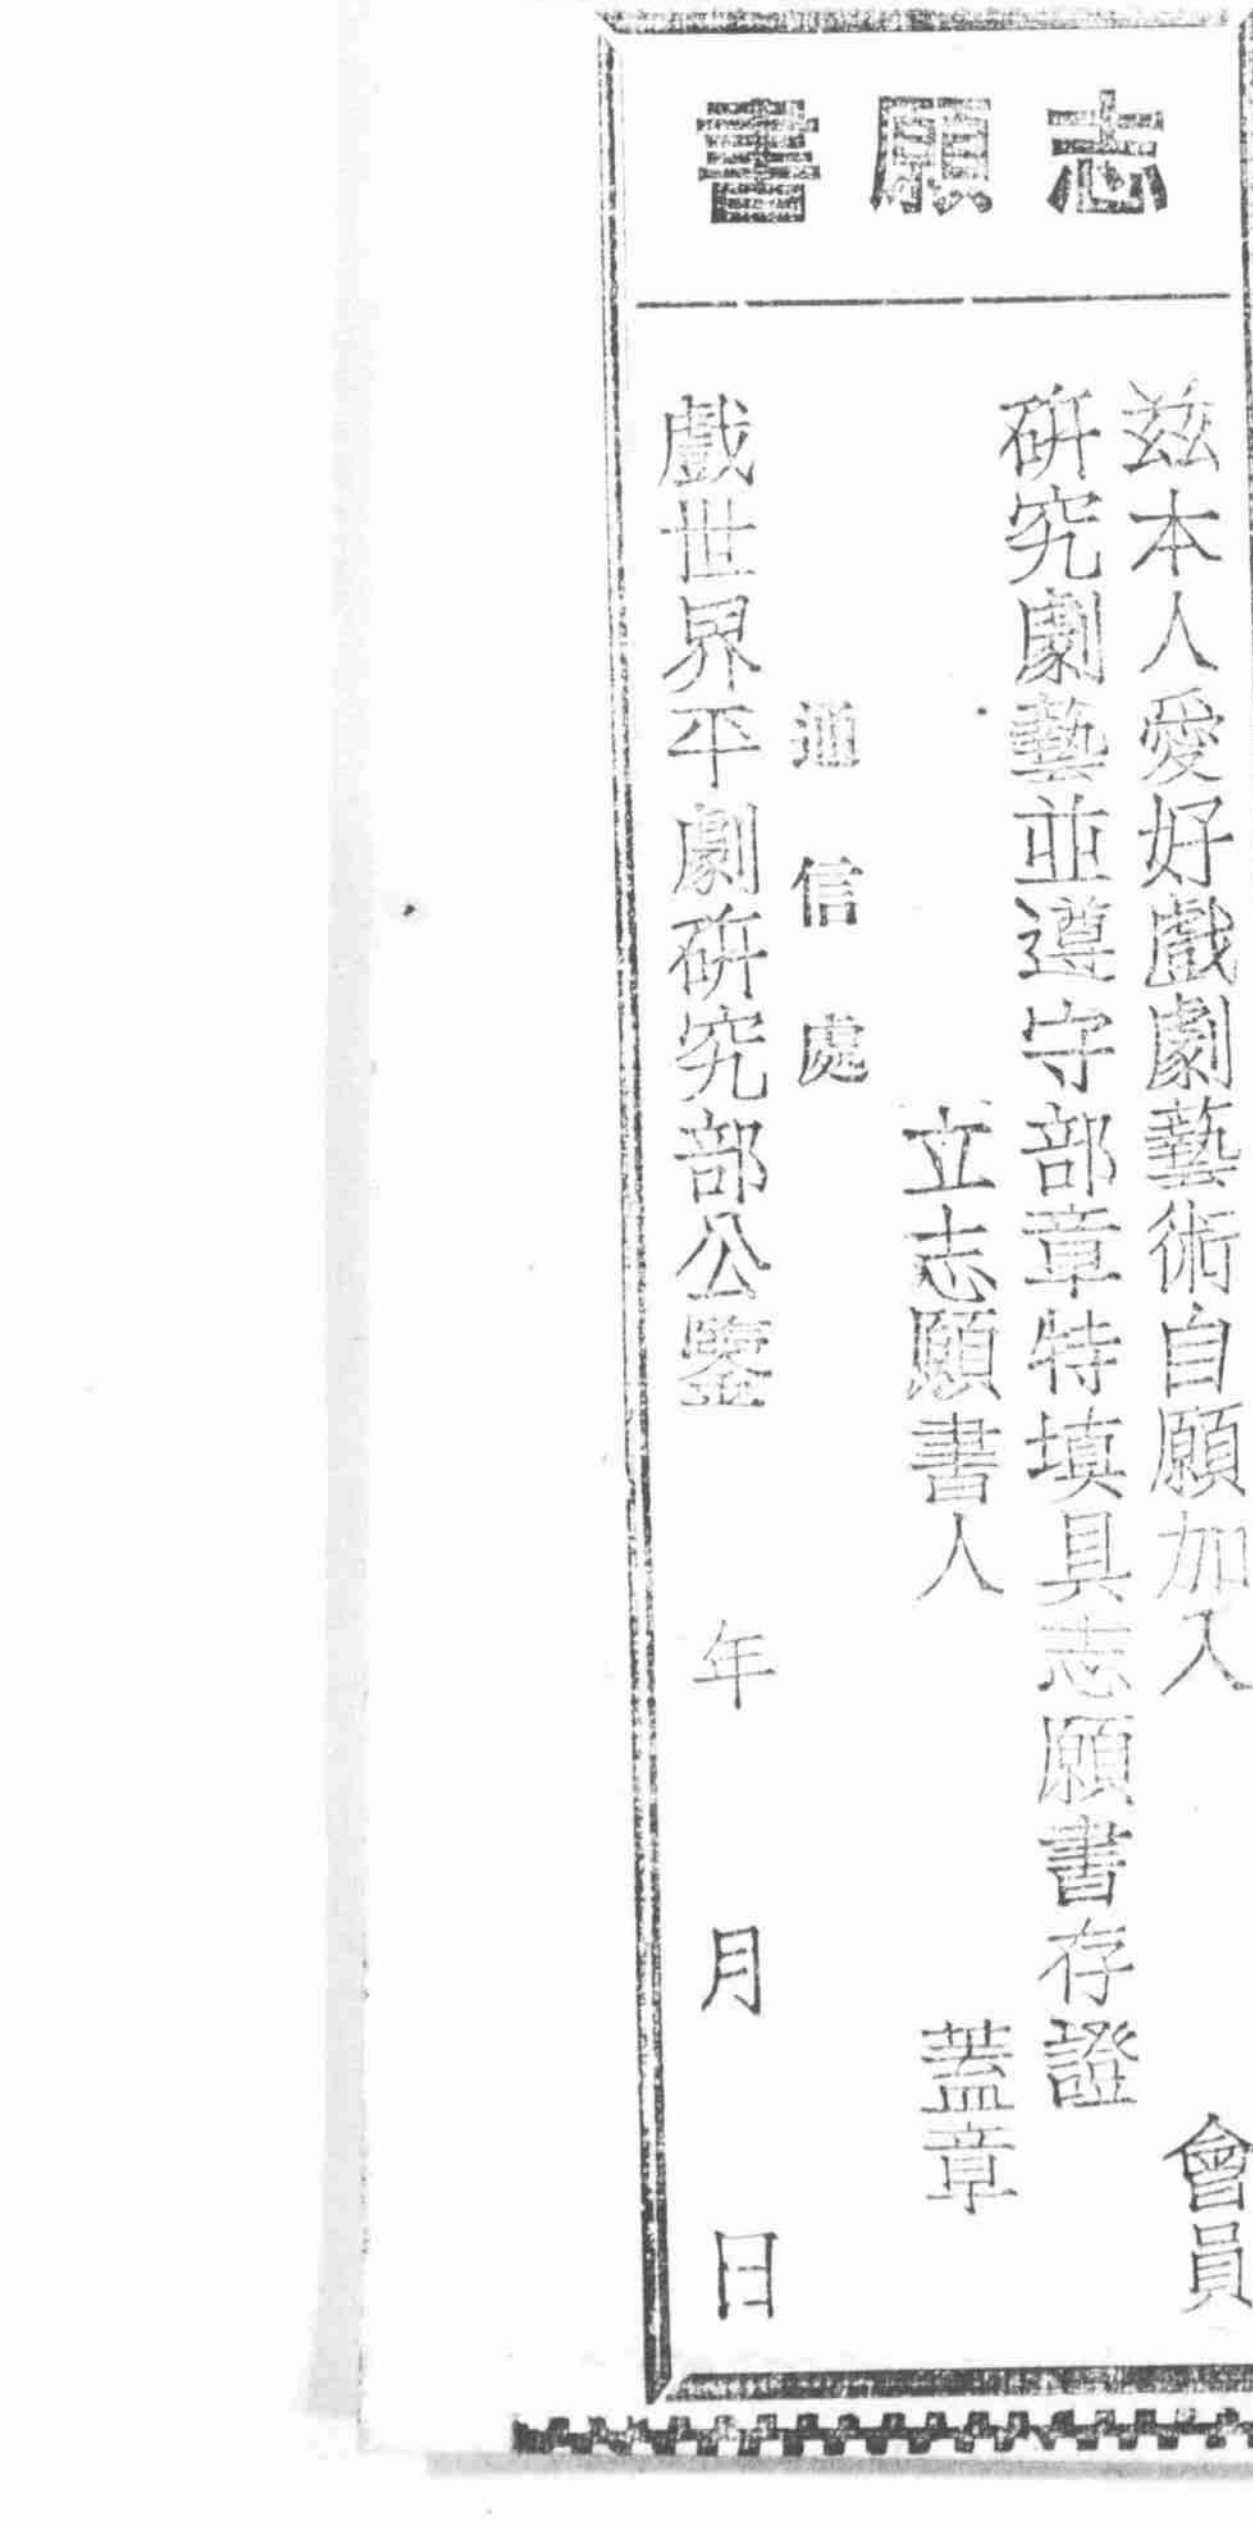 志願書
茲本人愛好戲劇藝術自願加入　　會員
研究劇藝並遵守部章特填具志願書存證
立志願書人　　蓋章
通信處
戲世界平劇研究部公鑒　年　月　日